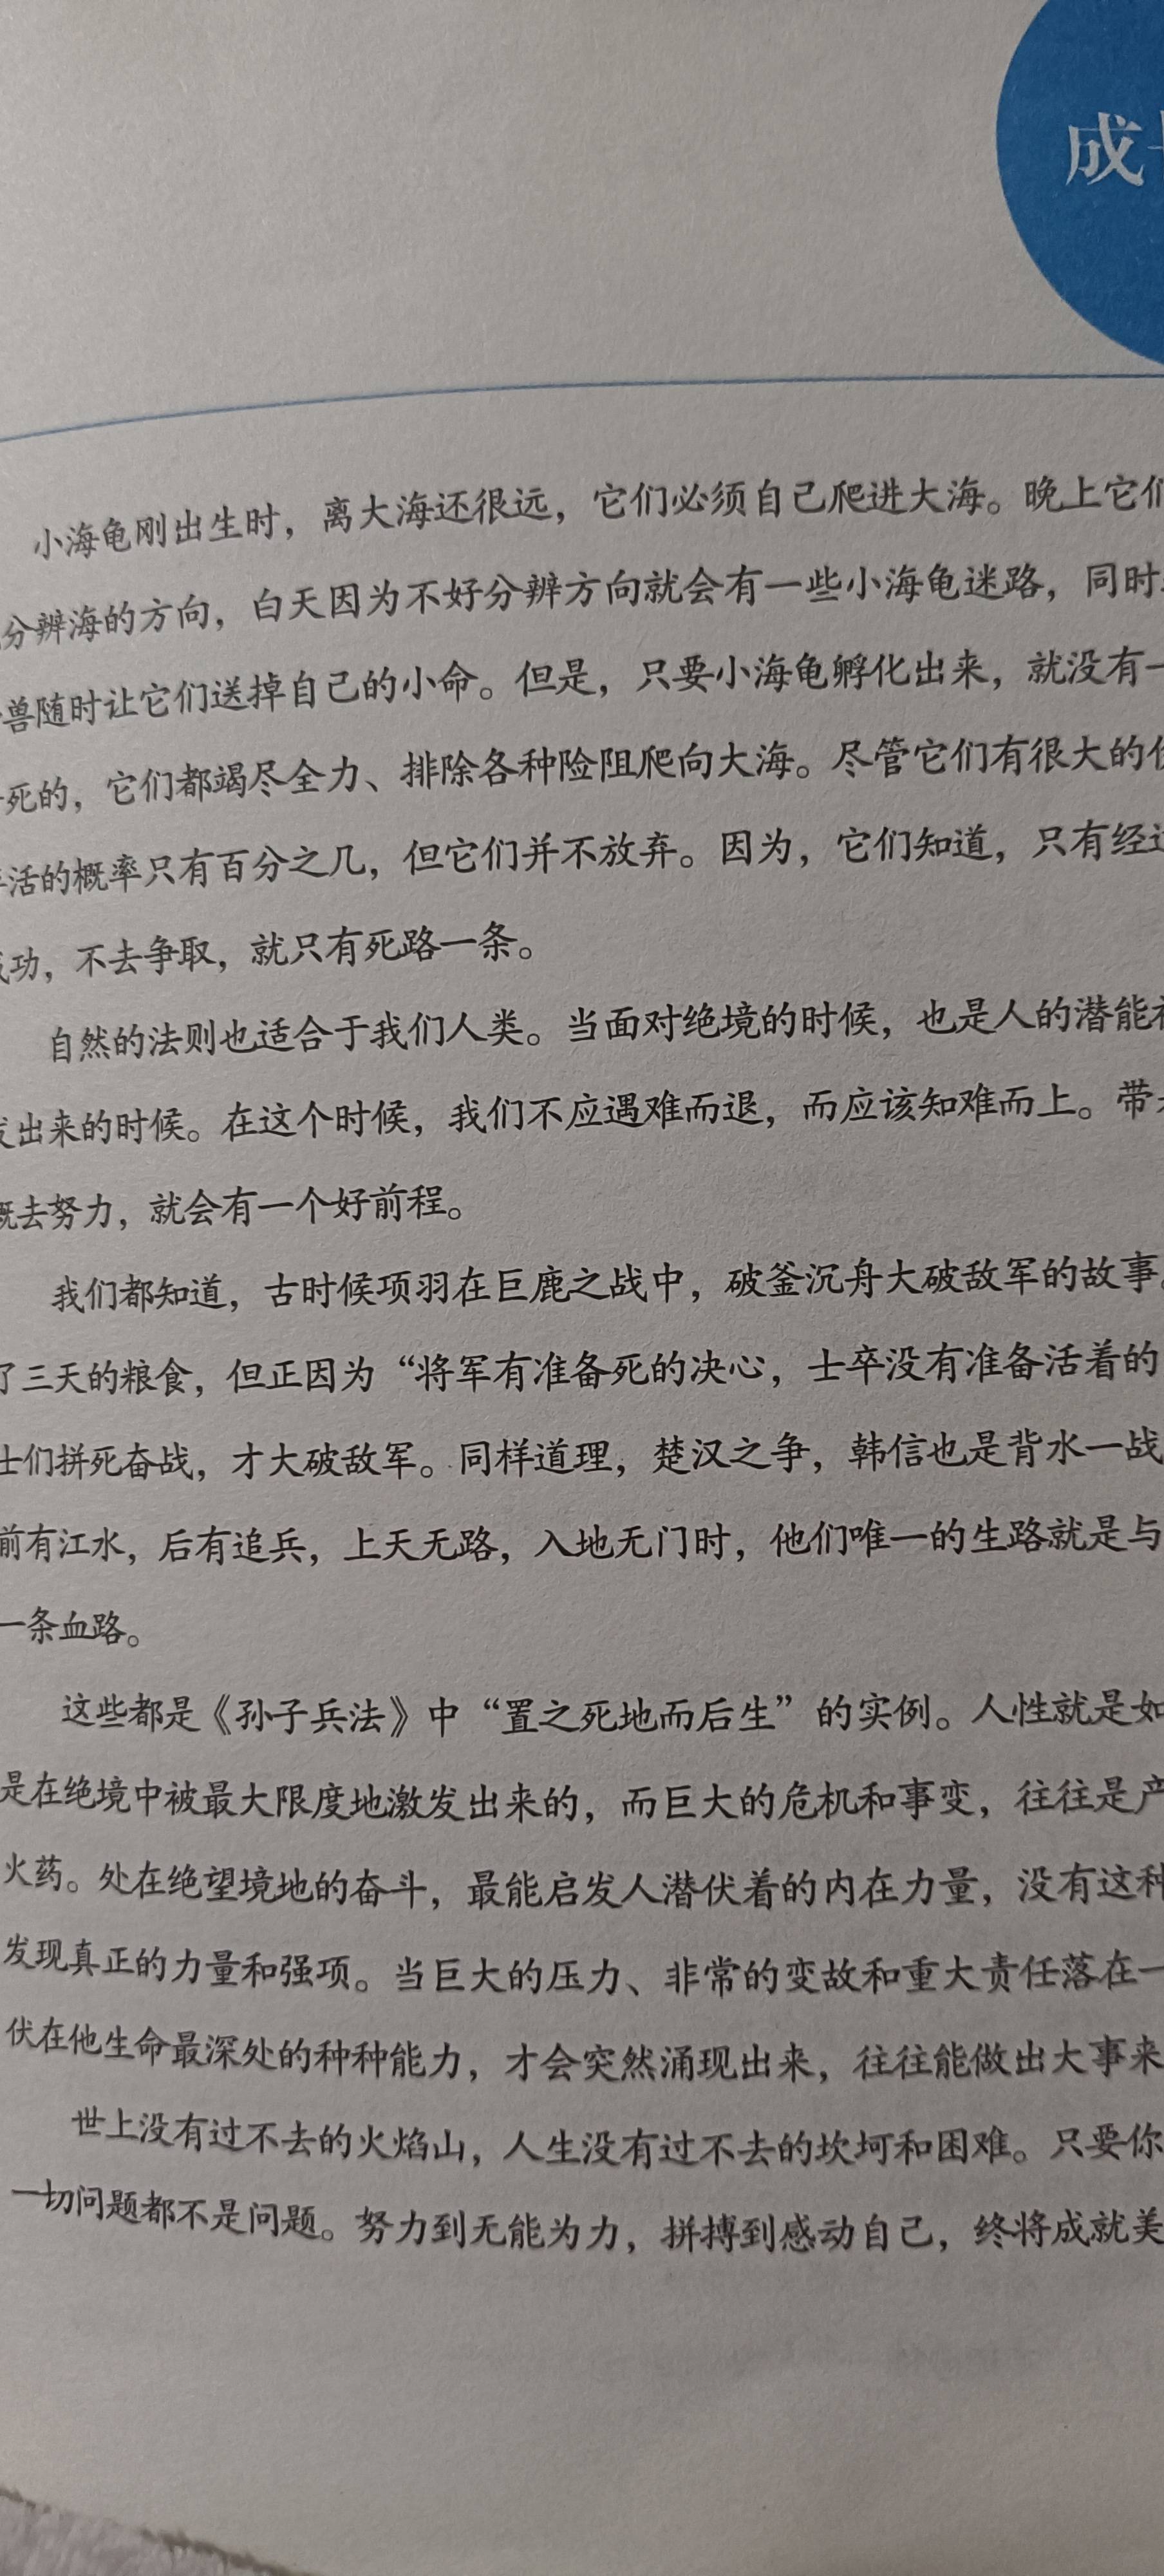 成
小海龟刚出生时，离大海还很远，它们必须自己爬进大海。晚上它们
分辨海的方向，白天因为不好分辨方向就会有一些小海龟迷路，同时
兽随时让它们送掉自己的小命。但是，只要小海龟孵化出来，就没有一
死的，它们都竭尽全力、排除各种险阻爬向大海。尽管它们有很大的
活的概率只有百分之几，但它们并不放弃。因为，它们知道，只有经过
功，不去争取，就只有死路一条。
自然的法则也适合于我们人类。当面对绝境的时候，也是人的潜能
发出来的时候。在这个时候，我们不应遇难而退，而应该知难而上。带
概去努力，就会有一个好前程。
我们都知道，古时候项羽在巨鹿之战中，破釜沉舟大破敌军的故事。
了三天的粮食，但正因为“将军有准备死的决心，士卒没有准备活着的
士们拼死奋战，才大破敌军。同样道理，楚汉之争，韩信也是背水一战
前有江水，后有追兵，上天无路，入地无门时，他们唯一的生路就是与
一条血路。
这些都是《孙子兵法》中“置之死地而后生”的实例。人性就是如
是在绝境中被最大限度地激发出来的，而巨大的危机和事变，往往是产
火药。处在绝望境地的奋斗，最能启发人潜伏着的内在力量，没有这种
发现真正的力量和强项。当巨大的压力、非常的变故和重大责任落在一
伏在他生命最深处的种种能力，才会突然涌现出来，往往能做出大事来
世上没有过不去的火焰山，人生没有过不去的坎坷和困难。只要你
一切问题都不是问题。努力到无能为力，拼搏到感动自己，终将成就美